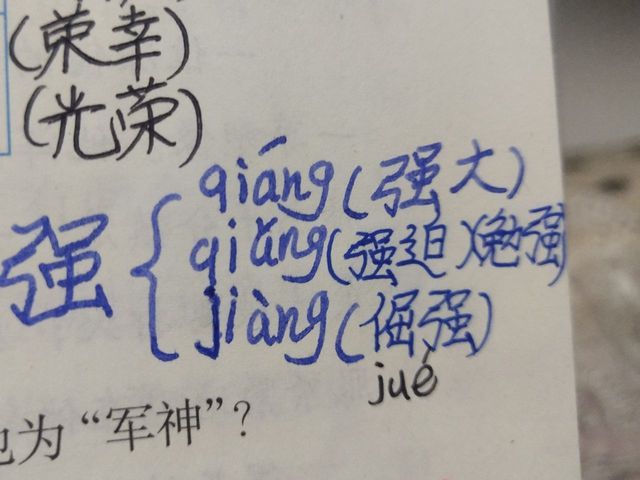 (荣幸)
(光荣)
qiáng(强大)
强 qiǎng(强迫)(勉强)
jiàng(倔强)
jué
为“军神”?